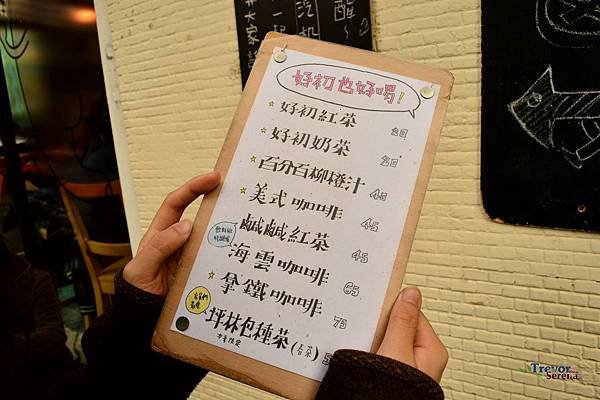 好初也好喝!
好初紅茶 20
好初奶茶 20
百分百柳橙汁 45
美式咖啡 45
鹹鹹紅茶 45
海雲咖啡 65
拿鐵咖啡 75
坪林包種茶(春茶) 5
本季限定
大家 一起
Trevor
Serena